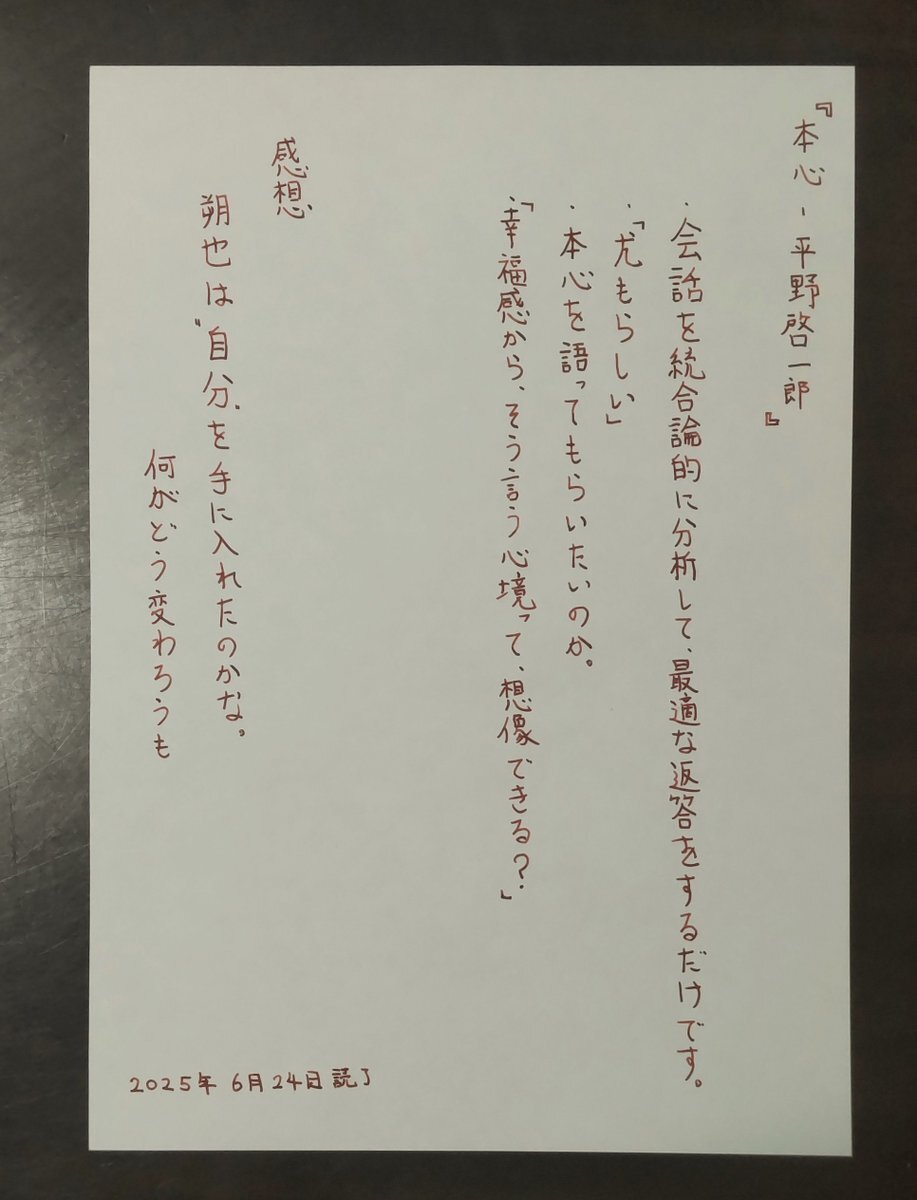 『本心 - 平野啓一郎』
・会話を統合論的に分析して、最適な返答をするだけです。
・「尤もらしい」
・本心を語ってもらいたいのか。
・「幸福感から、そう言う心境って、想像できる？」
感想
朔也は〝自分〟を手に入れたのかな。
何がどう変わろうも
2025年 6月24日 読了